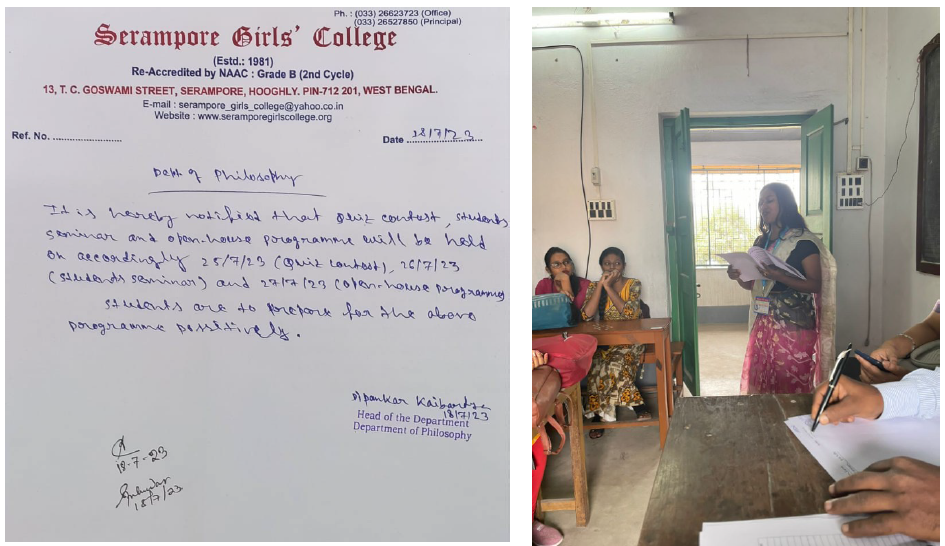 Ph. : (033) 26623723 (Office)
(033) 26527850 (Principal)
Serampore Girls' College
(Estd.: 1981)
Re-Accredited by NAAC : Grade B (2nd Cycle)
13, T. C. GOSWAMI STREET, SERAMPORE, HOOGHLY. PIN-712 201, WEST BENGAL.
E-mail : serampore_girls_college@yahoo.co.in
Website : www.seramporegirlscollege.org
Ref. No. ........................ Date 18/7/23
Dept of Philosophy
It is hereby notified that Quiz contest, students
seminar and open-house programme will be held
on accordingly 25/7/23 (Quiz contest), 26/7/23
(students seminar) and 27/7/23 (open-house programme)
students are to prepare for the above
programme positively.
Dipankar Kaibartya
18/7/23
Head of the Department
Department of Philosophy
18-7-23
18/7/23